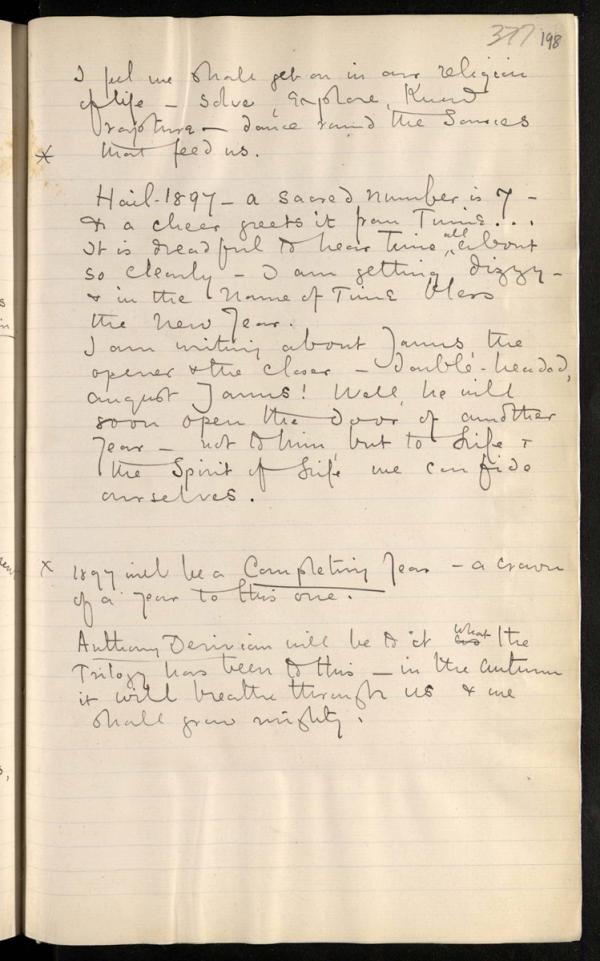 377 198
I feel we shall get on in our religion
of life – solve, explore, Knead
rapture – dance round the Sources
x that feed us.
Hail 1897 – a sacred number is 7 –
& a cheer greets it from Time...
It is dreadful to hear Time all about
so clearly – I am getting dizzy –
& in the Name of Time bless
the New Year.
I am writing about Janus, the
opener & the closer – double-headed,
august Janus! Well, he will
soon open the door of another
Year – not to him, but to Life &
the Spirit of Life, we confide
ourselves.
x 1897 will be a Completing Year – a crown
of a year to this one.
Anthony Derivian will be to it What the
Trilogy has been to this – in the autumn
it will breathe through us & we
shall grow mighty.